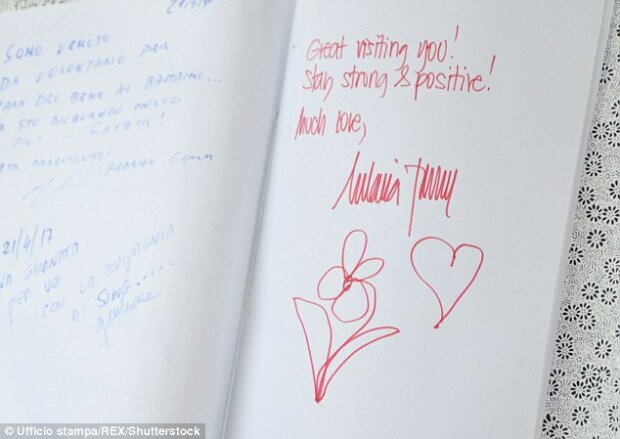 SONO VENUTO
DA VOLONTARIO PER
DEL BENE AI BAMBINI...
STO RICEVENDO MOLTO
PIÙ
21/4/17
GIORNATA
PER VOI
CON LA COMPAGNIA
DI SING.....
Great visiting you!
Stay strong & positive!
Much love,
Melania Trump
© Ufficio stampa/REX/Shutterstock